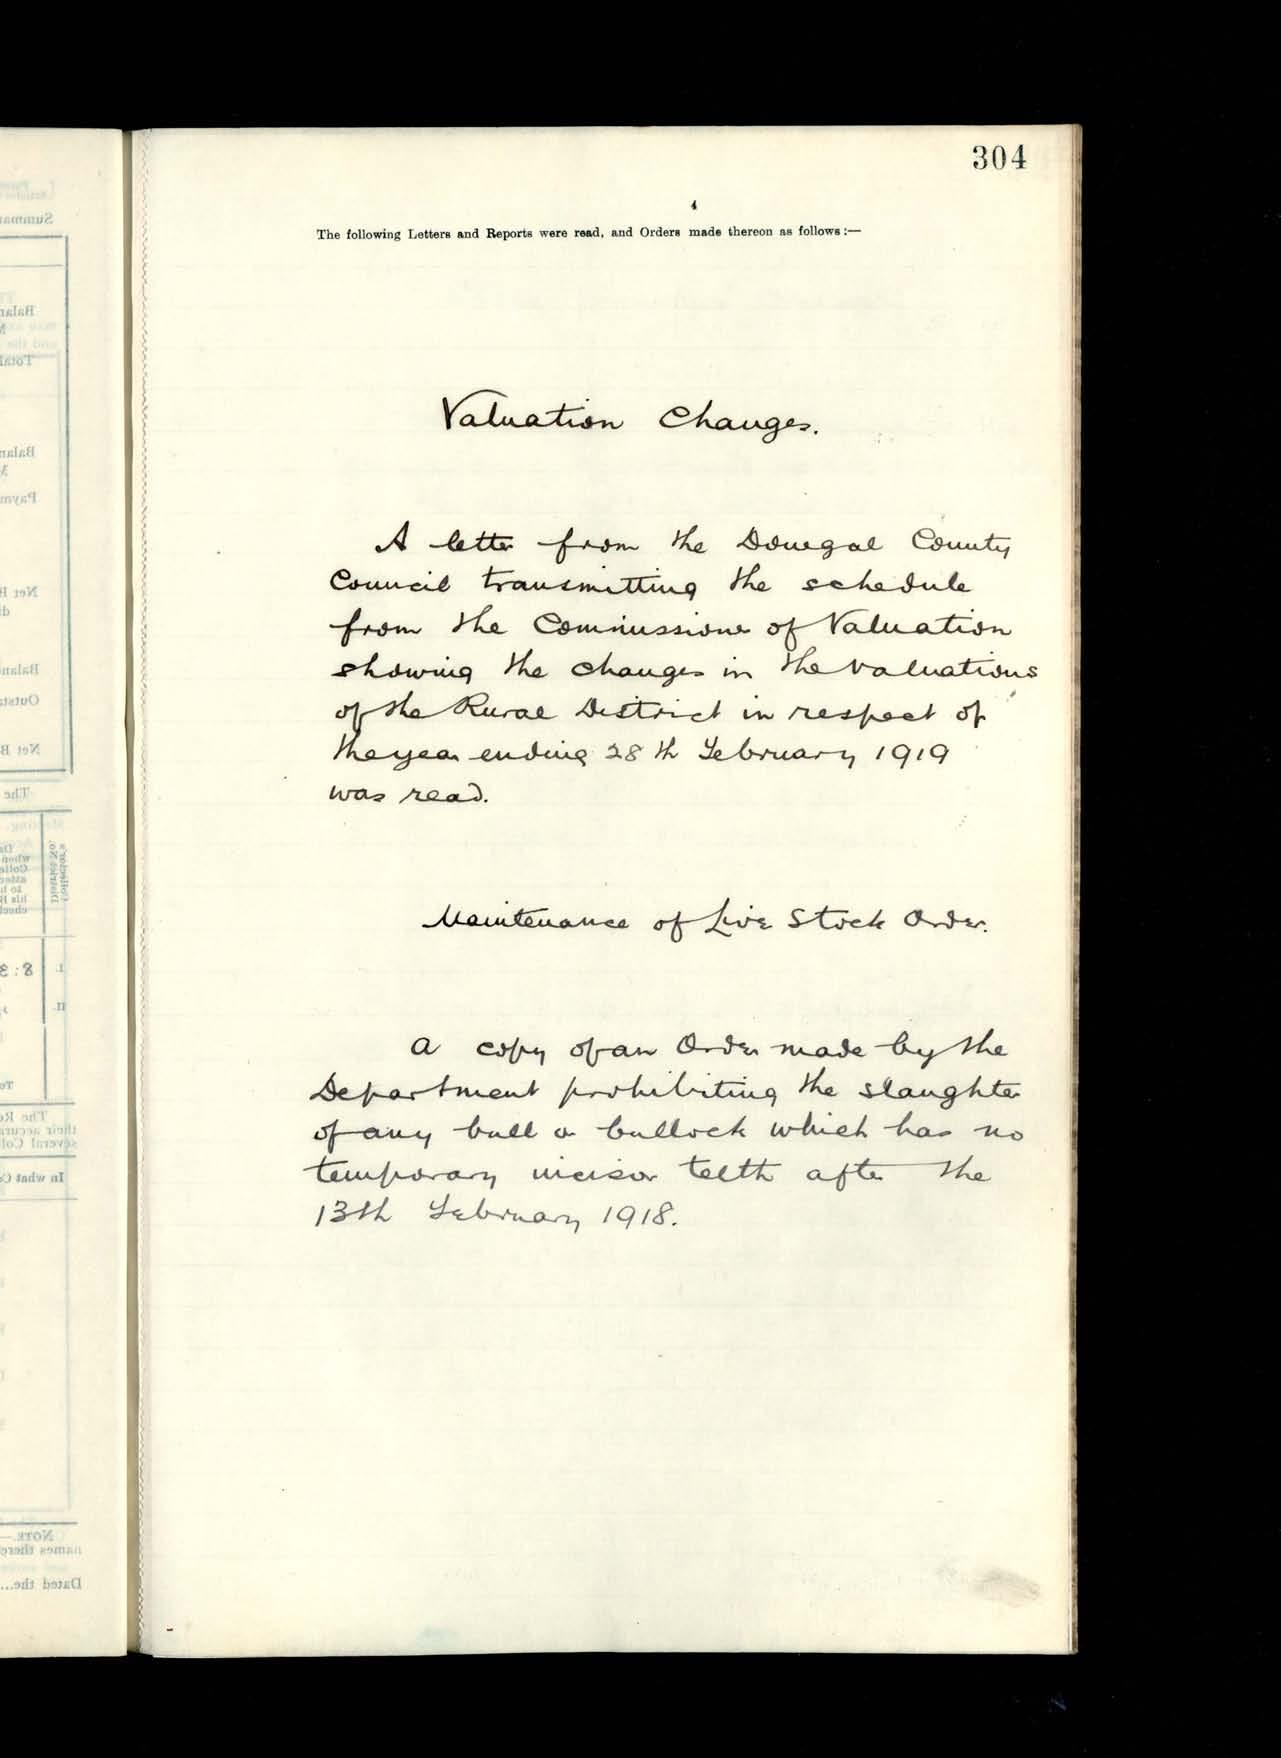 304
4
The following Letters and Reports were read, and Orders made thereon as follows :—
Valuation Changes.
A letter from the Donegal County
Council transmitting the schedule
from the Commissioner of Valuation
showing the changes in the valuations
of the Rural District in respect of
the year ending 28th February 1919
was read.
Maintenance of Live Stock Order.
A copy of an Order made by the
Department prohibiting the slaughter
of any bull or bullock which has no
temporary incisor teeth after the
13th February 1918.